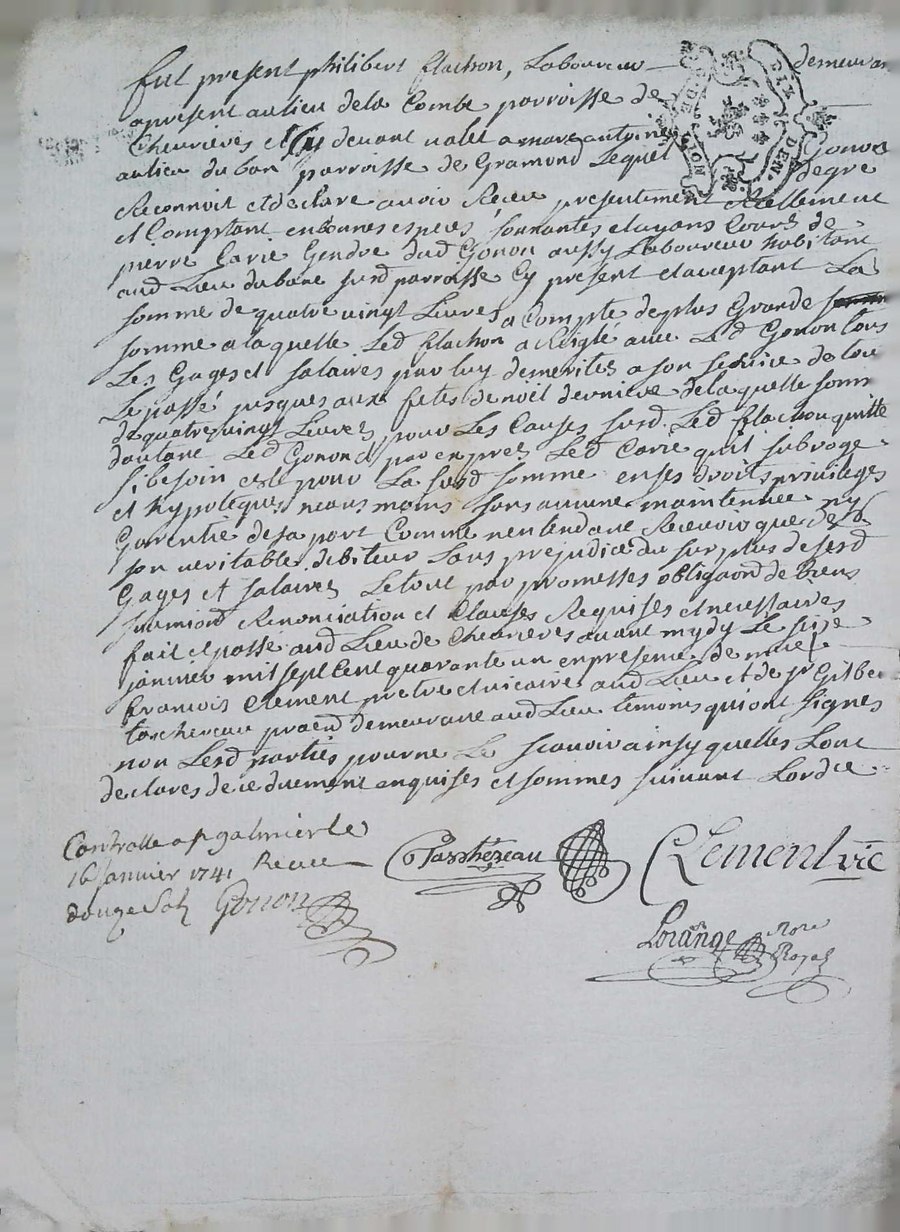 fut present philibert flachon, Laboureur demeurant
apresent au lieu dela Combe parroisse de
Chevrieres et cy devant valet a marc antoine Gonon
au lieu du ban parroisse de Gramond Lequel de gré
Reconnoit et declare avoir Receu presentement Reellement
et Comptant en bonnes especes sonnantes et ayans Cours de
pierre Carie Gendre dud Gonon aussy Laboureur habitant
aud Lieu du banc susd parroisse Cy present et aceptant La
somme de quatre vingt Livres a Compte de plus Grande
somme a la quelle Led flachon a Reiglé avec Led Gonon tous
Les Gages et salaires par luy demerites a son service de tout
Le passé jusques aux fetes de noel derniere de la quelle somme
de quatre vingt Livres pour Les Causes susd. Led flachon quitte
dautant Led Gonon par exprès Led Carie quil subroge
si besoin est pour La susd somme en ses droits privileges
et hypoteques neanmoins sans aucune maintenue ny
Garentie de sa part Comme nentendant Recevoir que de
son veritable debiteur sans prejudice du surplus de sesd
Gages et salaires Le tout par promesses obligaon de biens
submiond Renonciation et Clauses Requises et necessaires
fait et passé aud Lieu de Chevrieres avant mydy Le seize
janvier mil sept Cent quarante un en presence de mre
francois Clement pretre et vicaire aud Lieu et de sr Gilbert
taschereau demeurant aud Lieu temoins qui ont signes
non Lesd parties pour ne Le scavoir ainsy quelles Lont
declares de ce duement enquises et sommes suivant Lordce
MOY. G. DE
DIX DEN.
Controlle a st galmier le
16 Janvier 1741 Receu
douze sols Gonon
Tashereau
Clement vic
Lorange Nore
Royal